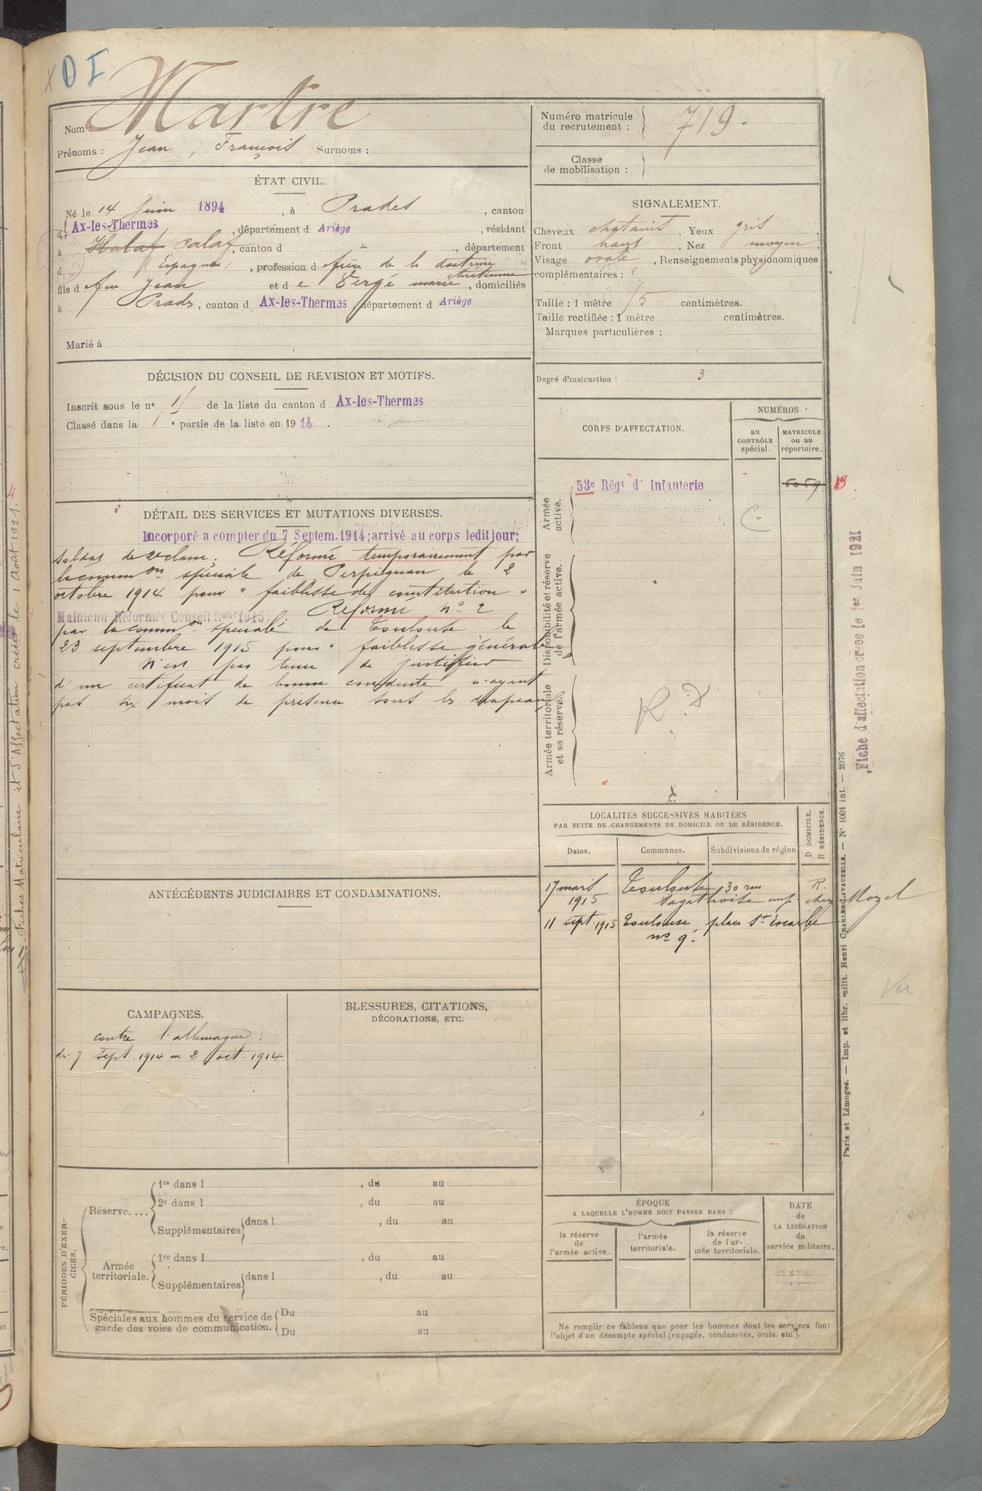 D I
Nom Martre
Prénoms : Jean, François Surnoms :
Numéro matricule
du recrutement : 719.
Classe
de mobilisation :
ÉTAT CIVIL.
Né le 14 juin 1894, à Prades, canton
d Ax-les-Thermes, département d Ariège, résidant
à Calaf, canton d , département
d (Espagne), profession d frère de la doctrine
chrétienne
fils d feu Jean et d e Vergé marie, domiciliés
à Prades, canton d Ax-les-Thermes, département d Ariège
Marié à
SIGNALEMENT.
Cheveux chatains, Yeux gris
Front haut, Nez moyen
Visage ovale, Renseignements physionomiques
complémentaires :
Taille : 1 mètre centimètres.
Taille rectifiée : 1 mètre centimètres.
Marques particulières :
Degré d'instruction : 3
DÉCISION DU CONSEIL DE REVISION ET MOTIFS.
Inscrit sous le n° de la liste du canton d Ax-les-Thermes
Classé dans la 1e partie de la liste en 1914.
CORPS D'AFFECTATION.
NUMÉROS
au
CONTRÔLE
spécial.
MATRICULE
ou au
répertoire.
Armée
active.
53e Régt d' Infanterie
Disponibilité et réserve
de l'armée active.
Armée territoriale
et sa réserve.
DÉTAIL DES SERVICES ET MUTATIONS DIVERSES.
Incorporé a compter du 7 Septem. 1914; arrivé au corps ledit jour;
soldat de 2e classe. Réformé temporairement par
la common spéciale de Perpignan le 2
octobre 1914 pour "faiblesse de constitution"
Maintenu Réformé Conseil Ron 1915 Réformé n° 2
par la common spéciale de Toulouse le
23 septembre 1915 pour "faiblesse générale"
N'est pas tenu de justifier
d'un certificat de bonne conduite n'ayant
pas six mois de présence sous les drapeaux
LOCALITÉS SUCCESSIVES HABITÉES
PAR SUITE DE CHANGEMENTS DE DOMICILE OU DE RÉSIDENCE.
Dates. Communes. Subdivisions de région
D DOMICILE.
R RÉSIDENCE.
17 mars
1915 Toulouse 30 rue R.
chez
11 sept 1915 Toulouse, place St
n° 9.
ANTÉCÉDENTS JUDICIAIRES ET CONDAMNATIONS.
CAMPAGNES.
contre l'allemagne :
du 7 Sept. 1914 au 2 oct. 1914
BLESSURES, CITATIONS,
DÉCORATIONS, ETC.
PÉRIODES D'EXER-
CICES.
Réserve....
1re dans l , du au
2e dans l , du au
Supplémentaires dans l , du au
Armée
territoriale.
1re dans l , du au
Supplémentaires dans l , du au
Spéciales aux hommes du service de
garde des voies de communication.
Du au
Du au
ÉPOQUE
A LAQUELLE L'HOMME DOIT PASSER DANS :
la réserve
de
l'armée active.
l'armée
territoriale.
la réserve
de l'ar-
mée territoriale.
DATE
de
LA LIBÉRATION
du
service militaire.
Ne remplir ce tableau que pour les hommes dont les services font
l'objet d'un décompte spécial (engagés, condamnés, omis, etc.).
Fiche d'affectation créée le 1er Juin 1921
Paris et Limoges. — Imp. et libr. milit. Henri CHARLES-LAVAUZELLE. — N° 1001 int. — 2076
Vu